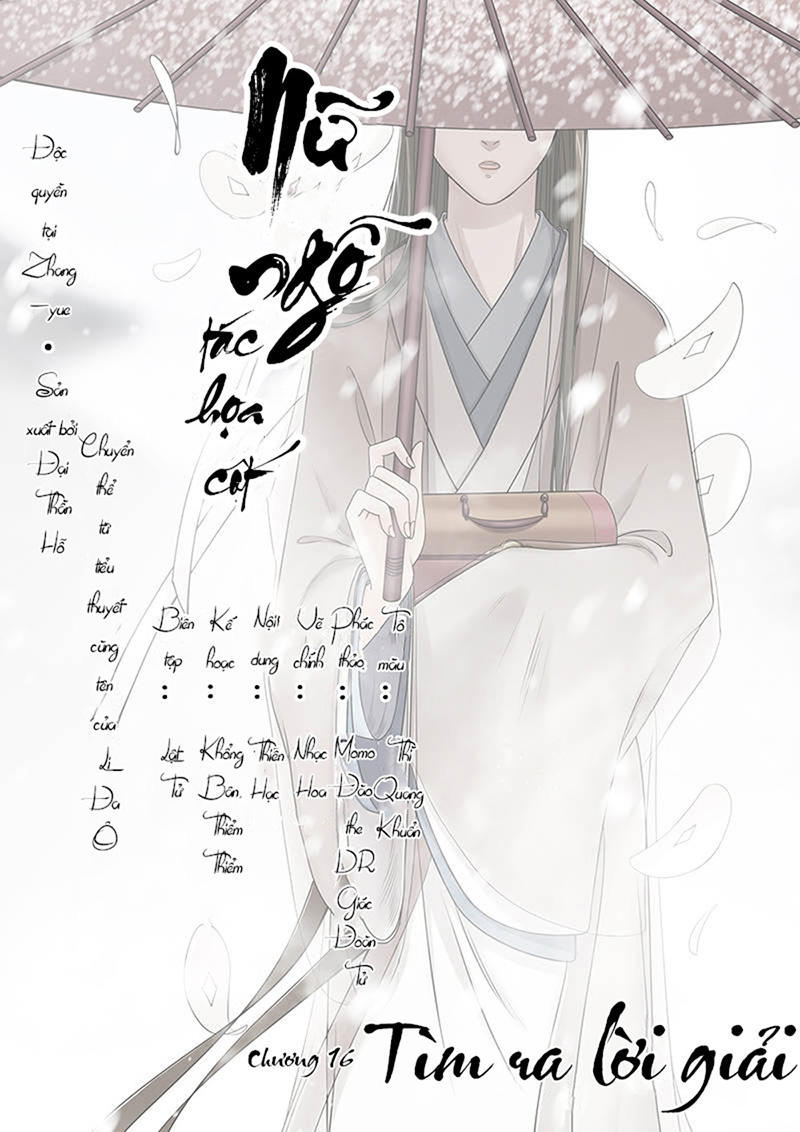 Nữ
ngỗ
tác
họa
cốt
Độc
quyền
tại
Zhang
-yue
•
Sản
xuất bởi
Đại
Thần
Hỗ
Chuyển
thể
từ
tiểu
thuyết
cùng
tên
của
Li
Đa
Ô
Biên
tập
:
Lật
Tử
Kế
hoạc
:
Khổng
Bân.
Thiểm
Thiểm
Nội!
dung
:
Thiên
Học
Vẽ
chính
:
Nhạc
Hoa
Phác
thảo,
:
Momo
Đào
the
DR
Giác
Đoàn
Tử
Tô
màu
:
Thì
Quang
Khuẩn
Chương 16
Tìm ra lời giải